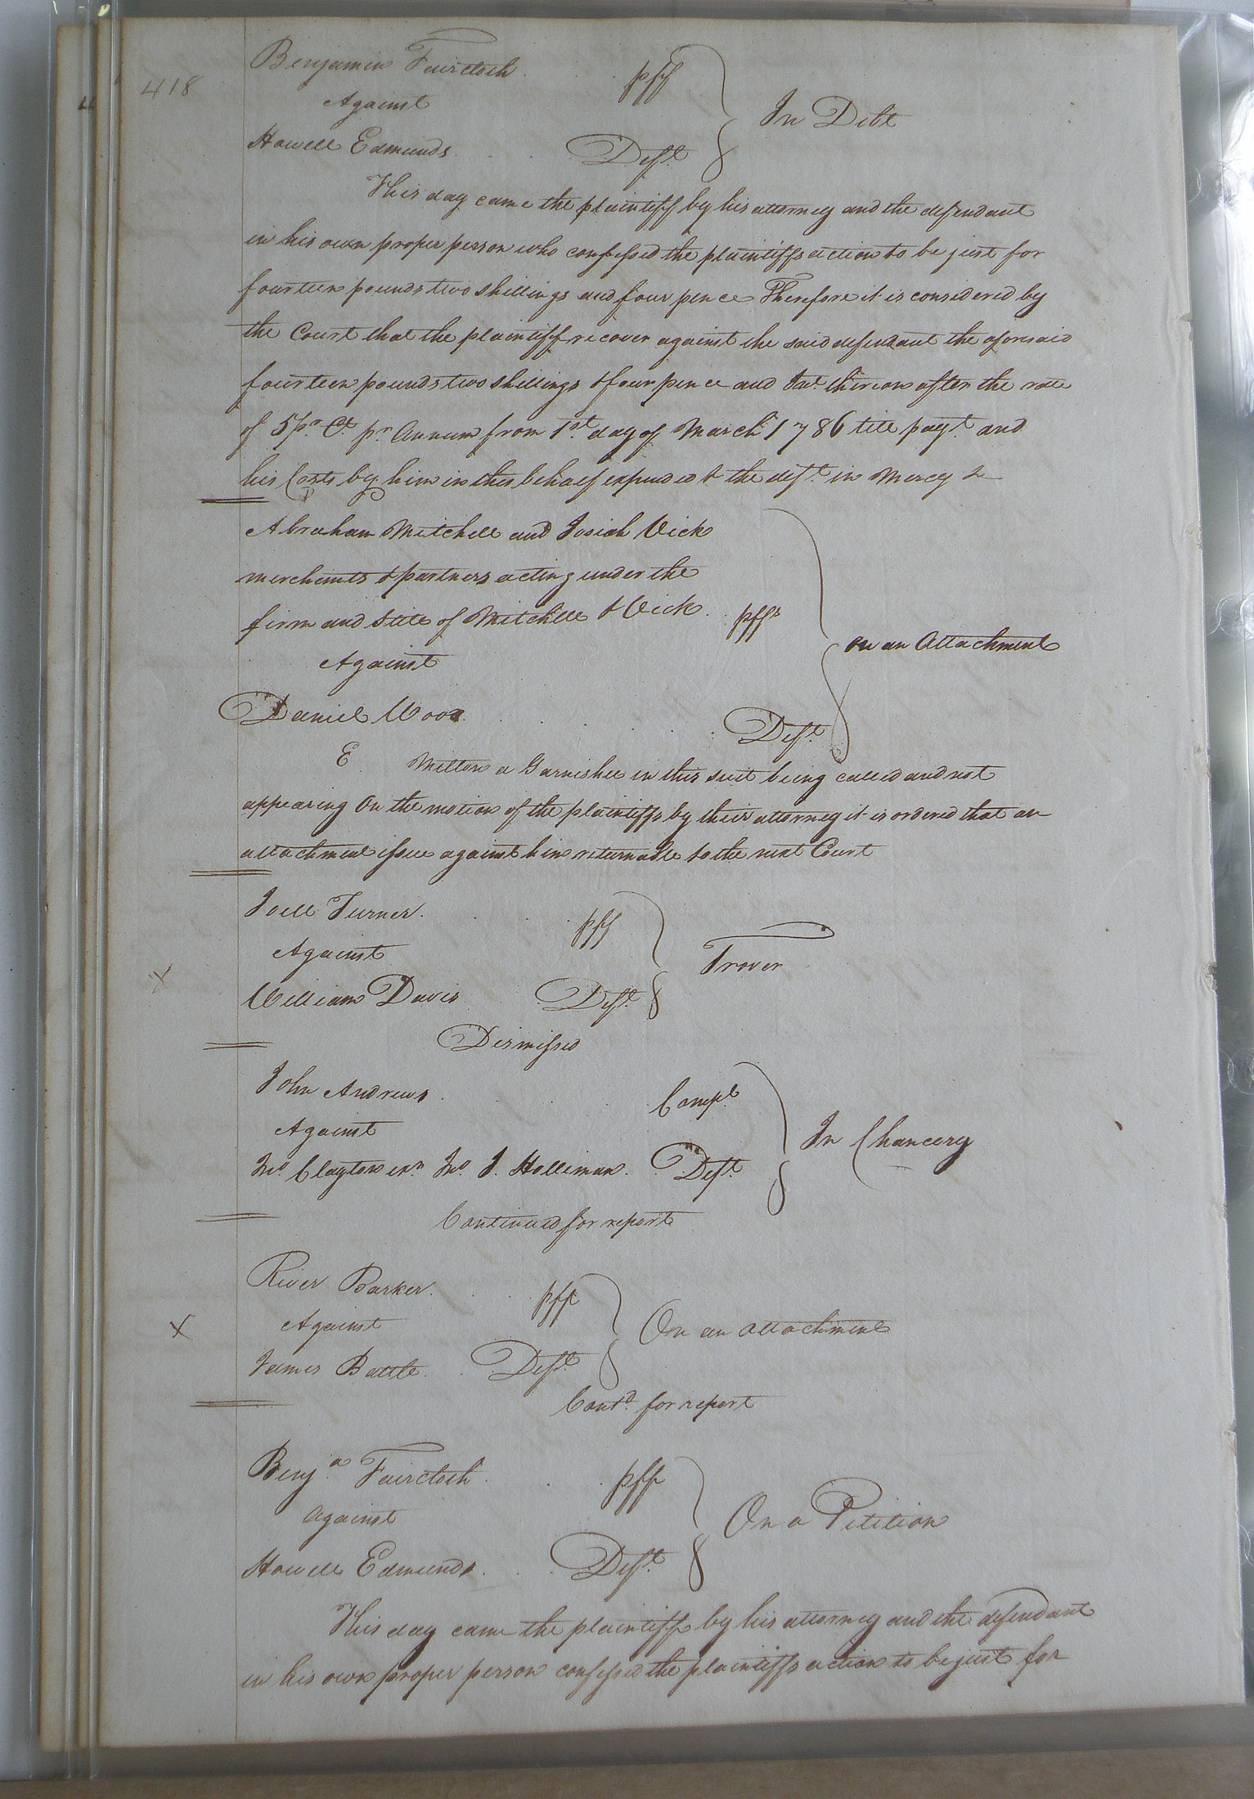 418
Benjamin Faircloth plff
Against In Debt
Howell Edmunds Deft
This day came the plaintiff by his attorney and the defendant
in his own proper person who confessed the plaintiffs action to be just for
fourteen pounds two shillings and four pence Therefore it is considered by
the Court that the plaintiff recover against the said defendant the aforesaid
fourteen pounds two shillings & four pence and Int. thereon after the rate
of 5 pr. Ct. pr Annum from 1st. day of March 1786 till payt. and
his Costs by him in this behalf expended & the deft. in Mercy &
Abraham Mitchell and Josiah Vick
merchants & partners acting under the
firm and Stile of Mitchell & Vick plffs
Against on an Attachment
Daniel Wood Deft.
E Milton a Garnishee in this suit being called and not
appearing On the motion of the plaintiffs by their attorney it is ordered that an
attachment issue against him returnable to the next Court
Joell Turner plff
X Against Trover
William Davis Deft.
Dismissed
John Andrews Compt
Against In Chancery
Jno. Clayton exr. Jno. J. Holliman Deft.
Continued for report
River Barker plff
X Against On an attachment
James Battle Deft.
Contd. for report
Benja. Faircloth plff
against On a Petition
Howell Edmunds Deft.
This day came the plaintiff by his attorney and the defendant
in his own proper person confessed the plaintiffs action to be just for